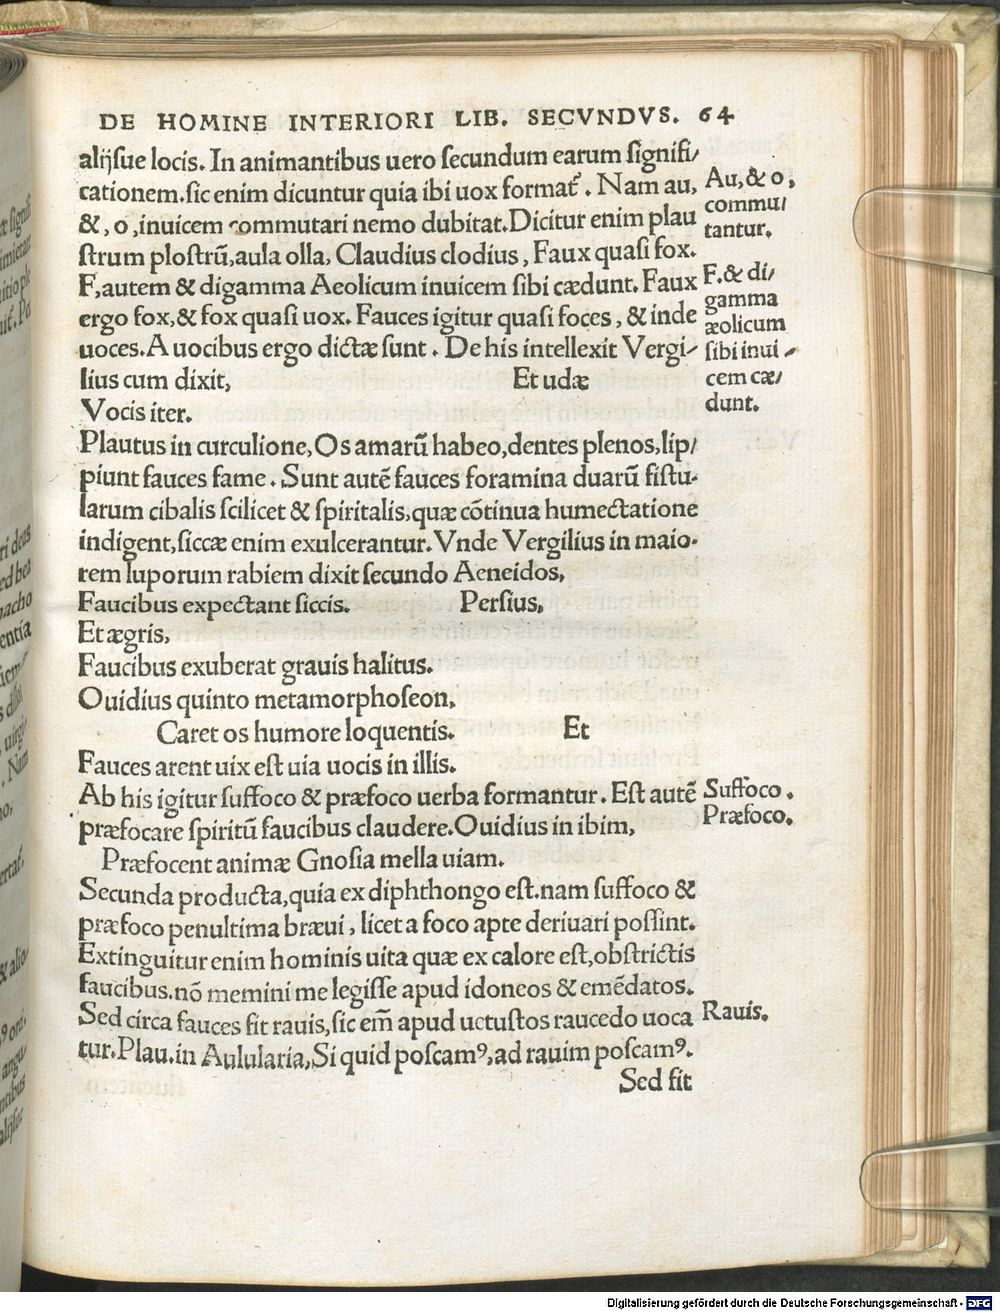 DE HOMINE INTERIORI LIB. SECVNDVS. 64
alijſue locis. In animantibus uero ſecundum earum ſignifi/
cationem.ſic enim dicuntur quia ibi uox format᷑. Nam au,
&, o ,inuicem commutari nemo dubitat.Dicitur enim plau
ſtrum ploſtrũ,aula olla, Claudius clodius, Faux quaſi fox.
F,autem & digamma Aeolicum inuicem ſibi cædunt. Faux
ergo fox,& fox quaſi uox. Fauces igitur quaſi foces, & inde
uoces.A uocibus ergo dictæ ſunt. De his intellexit Vergi/
lius cum dixit, Et udæ
Vocis iter.
Plautus in curculione,Os amarũ habeo,dentes plenos,lip/
piunt fauces fame. Sunt autẽ fauces foramina duarũ fiſtu-
larum cibalis ſcilicet & ſpiritalis,quæ cõtinua humectatione
indigent,ſiccæ enim exulcerantur.Vnde Vergilius in maio-
rem luporum rabiem dixit ſecundo Aeneidos,
Faucibus expectant ſiccis. Perſius,
Et ægris,
Faucibus exuberat grauis halitus.
Ouidius quinto metamorphoſeon,
Caret os humore loquentis. Et
Fauces arent uix eſt uia uocis in illis.
Ab his igitur ſuffoco & præfoco uerba formantur. Eſt autẽ
præfocare ſpiritũ faucibus claudere.Ouidius in ibim,
Præfocent animæ Gnoſia mella uiam.
Secunda producta,quia ex diphthongo eſt.nam ſuffoco &
præfoco penultima bræui, licet a foco apte deriuari poſſint.
Extinguitur enim hominis uita quæ ex calore eſt,obſtrictis
faucibus.nõ memini me legiſſe apud idoneos & emẽdatos.
Sed circa fauces fit rauis,ſic em̃ apud uetuſtos raucedo uoca
tur.Plau.in Aulularia,Si quid poſcamꝰ,ad rauim poſcamꝰ.
Sed fit
Au,& o,
commu/
tantur.
F.& di/
gamma
æolicum
ſibi inui/
cem cæ/
dunt.
Suffoco.
Præfoco.
Rauis.
Digitalisierung gefördert durch die Deutsche Forschungsgemeinschaft - DFG